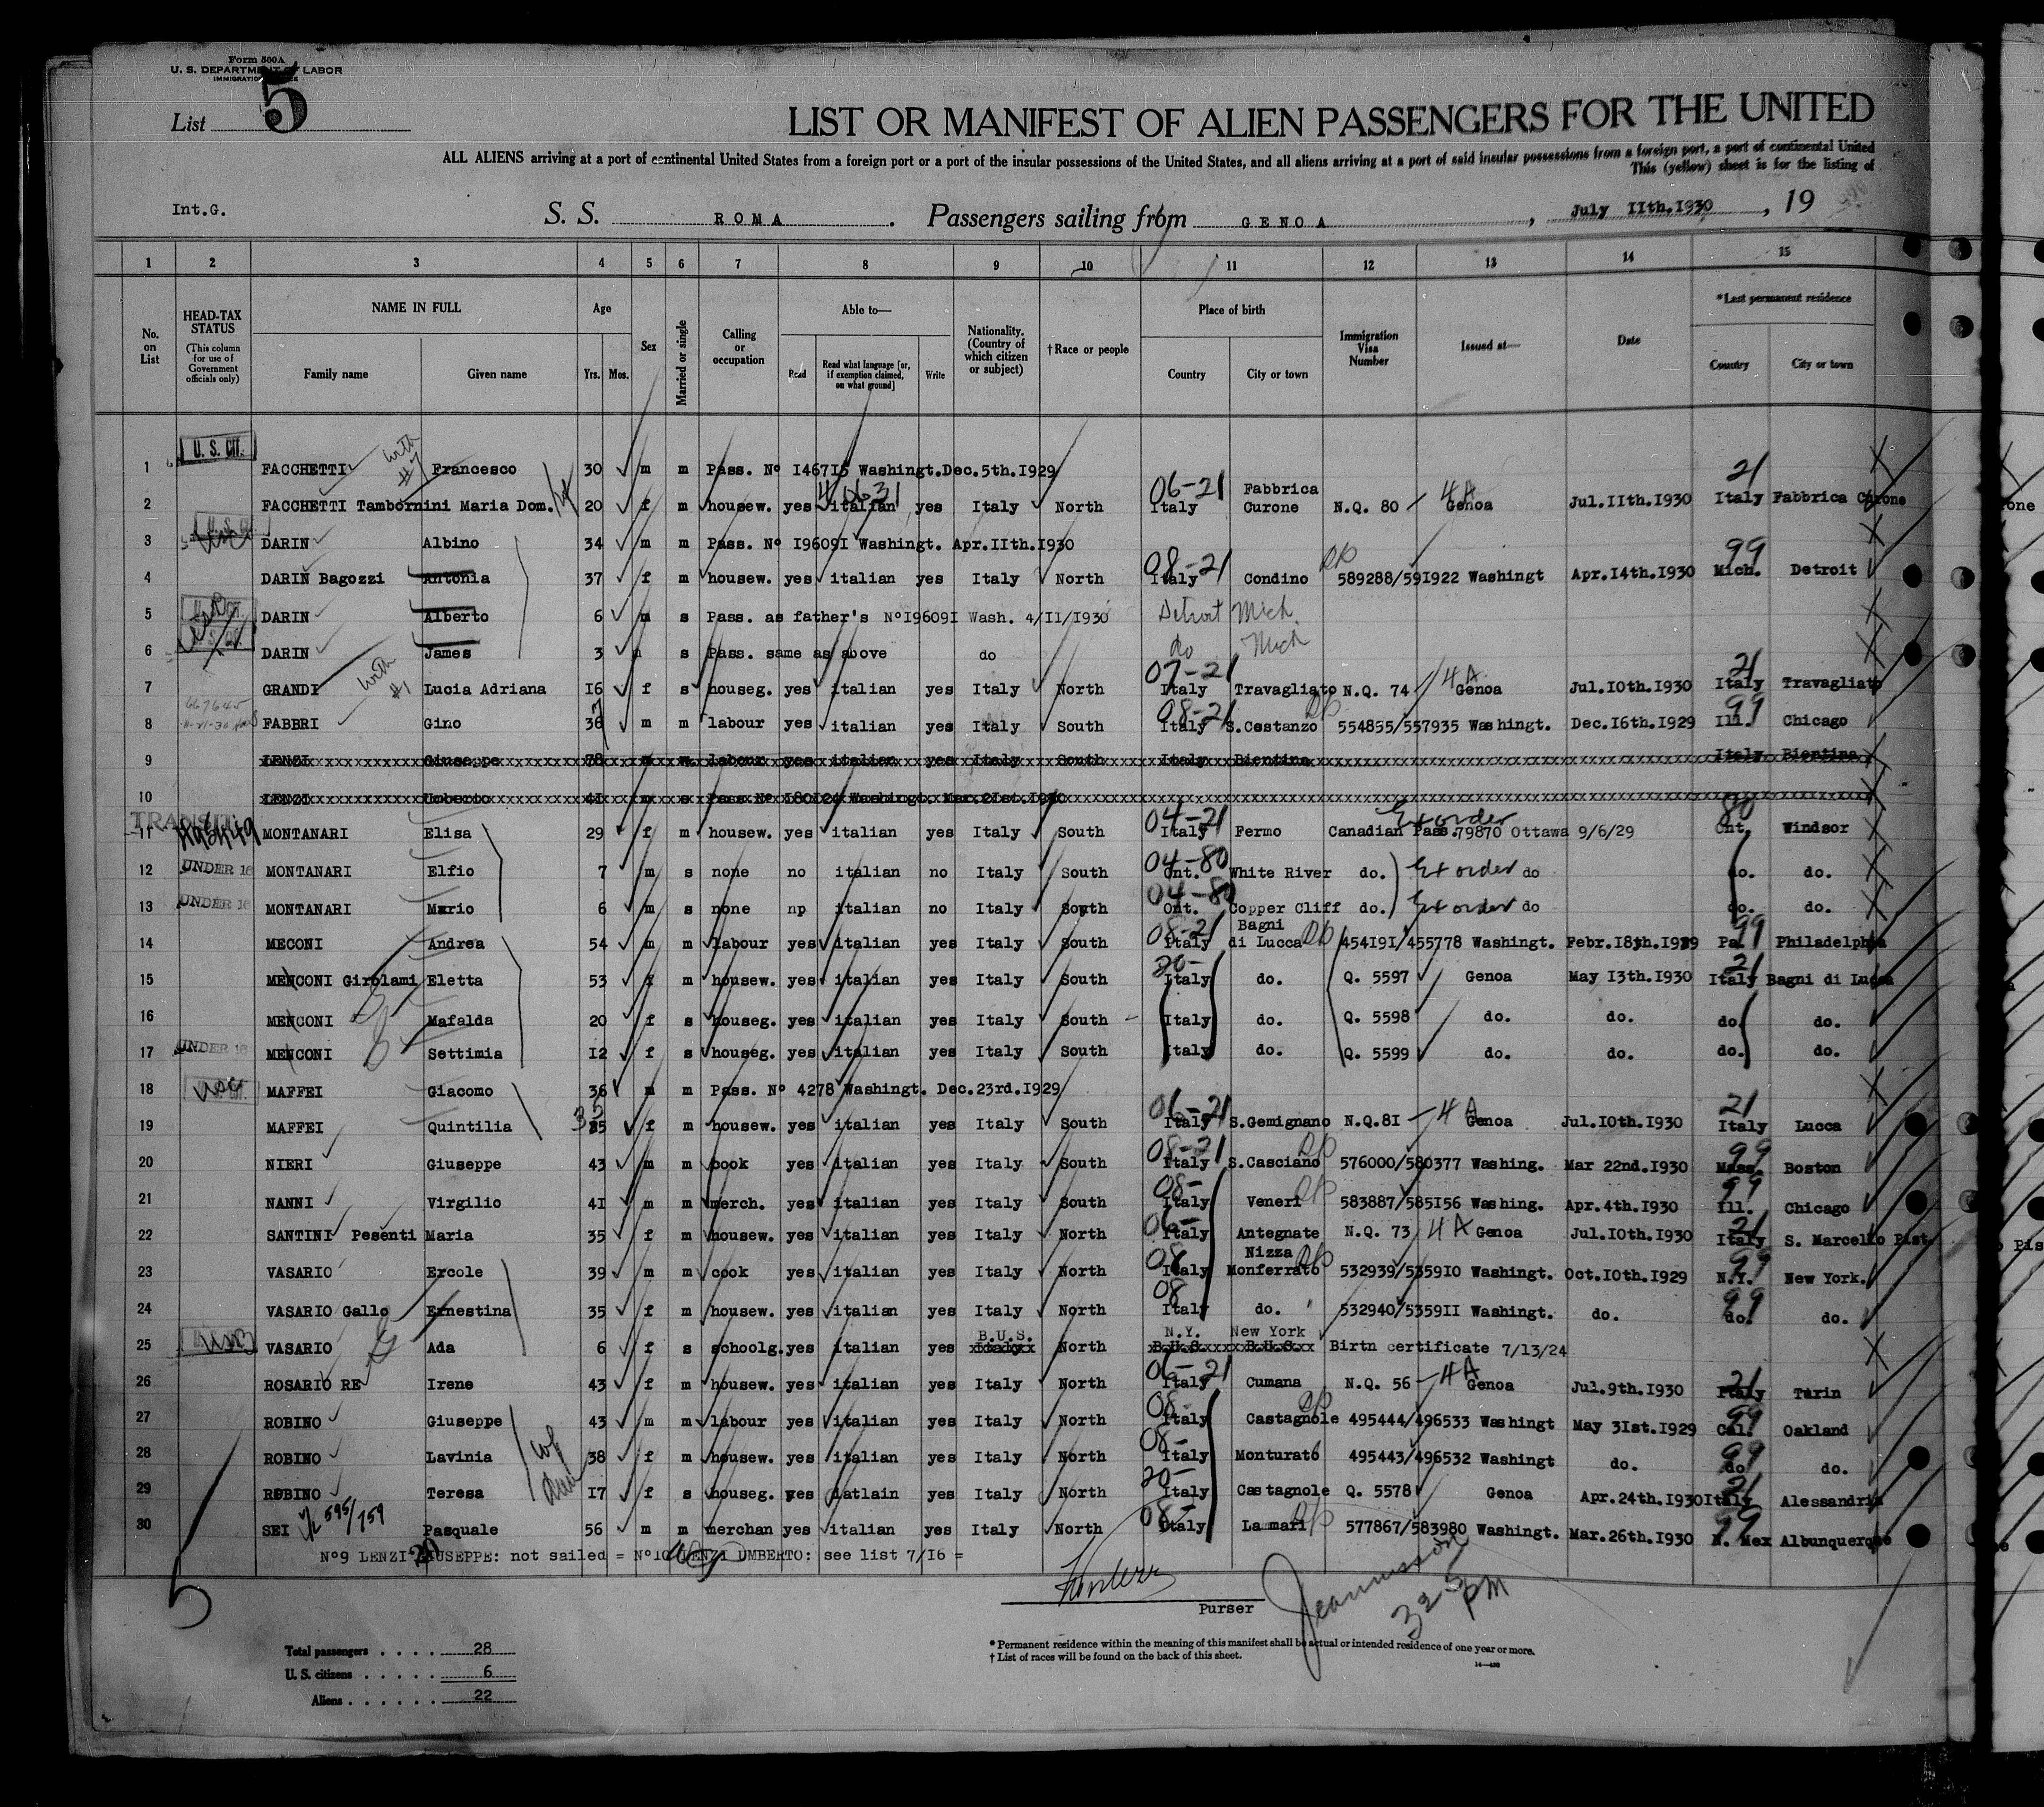 Form 500A
U. S. DEPARTMENT OF LABOR
List 5
LIST OR MANIFEST OF ALIEN PASSENGERS FOR THE UNITED
ALL ALIENS arriving at a port of continental United States from a foreign port or a port of the insular possessions of the United States, and all aliens arriving at a port of said insular possessions from a foreign port, a port of continental United
This (yellow) sheet is for the listing of
Int.G. S. S. ROMA. Passengers sailing from GENOA, July IIth.I930, 19
1 2 3 4 5 6 7 8 9 10 11 12 13 14 15
No. on List HEAD-TAX STATUS (This column for use of Government officials only) NAME IN FULL Family name Given name Age Yrs. Mos. Sex Married or single Calling or occupation Able to— Read Read what language [or, if exemption claimed, on what ground] Write Nationality. (Country of which citizen or subject) †Race or people Place of birth Country City or town Immigration Visa Number Issued at— Date *Last permanent residence Country City or town
1 U. S. CIT. FACCHETTI with #7 Francesco 30 m m Pass. Nº I467I5 Washingt.Dec.5th.I929
2 FACCHETTI Tambornini Maria Dom. 20 f m housew. yes italian yes Italy North 06-21 Italy Fabbrica Curone N.Q. 80 4A Genoa Jul.IIth.I930 21 Italy Fabbrica Curone
3 DARIN Albino 34 m m Pass. Nº I9609I Washingt. Apr.IIth.I930
4 DARIN Bagozzi Antonia 37 f m housew. yes italian yes Italy North 08-21 Italy Condino 589288/59I922 Washingt Apr.I4th.I930 99 Mich. Detroit
5 DARIN Alberto 6 m s Pass. as father's NºI9609I Wash. 4/II/I930 Detroit Mich.
6 DARIN James 3 s Pass. same as above do do Mich
7 GRANDI with #1 Lucia Adriana I6 f s houseg. yes italian yes Italy North 07-21 Italy Travagliato N.Q. 74 4A Genoa Jul.I0th.I930 21 Italy Travagliato
8 FABBRI Gino 36 m m labour yes italian yes Italy South 08-21 Italy S.Costanzo 554855/557935 Washingt. Dec.I6th.I929 99 Ill. Chicago
9 LENZI Giuseppe 78 m w labour yes italian yes Italy South Italy Bientina Italy Bientina
10 LENZI Umberto 4I m s Pass.Nº I80I24 Washingt. Mar.2Ist.I930
TRANSIT
11 MONTANARI Elisa 29 f m housew. yes italian yes Italy South 04-21 Italy Fermo Canadian Pass.79870 Ottawa 9/6/29 Ex order Ont. Windsor
12 UNDER 16 MONTANARI Elfio 7 m s none no italian no Italy South 04-80 Ont. White River do. Ex order do do. do.
13 UNDER 16 MONTANARI Mario 6 m s none np italian no Italy South 04-80 Ont. Copper Cliff do. Ex order do do. do.
14 MECONI Andrea 54 m m labour yes italian yes Italy South 08-21 Italy Bagni di Lucca 454I9I/455778 Washingt. Febr.I8th.I929 99 Pa. Philadelphia
15 MENCONI Girolami Eletta 53 f m housew. yes italian yes Italy South 20- Italy do. Q. 5597 Genoa May I3th.I930 21 Italy Bagni di Lucca
16 MENCONI Mafalda 20 f s houseg. yes italian yes Italy South Italy do. Q. 5598 do. do. do. do.
17 UNDER 16 MENCONI Settimia I2 f s houseg. yes italian yes Italy South Italy do. Q. 5599 do. do. do. do.
18 MAFFEI Giacomo 36 m m Pass. Nº 4278 Washingt. Dec.23rd.I929
19 MAFFEI Quintilia 35 f m housew. yes italian yes Italy South 06-21 Italy S.Gemignano N.Q.8I 4A Genoa Jul.I0th.I930 21 Italy Lucca
20 NIERI Giuseppe 43 m m cook yes italian yes Italy South 08-21 Italy S.Casciano 576000/580377 Washing. Mar 22nd.I930 99 Mass. Boston
21 NANNI Virgilio 4I m m merch. yes italian yes Italy South 08- Italy Veneri 583887/585I56 Washing. Apr.4th.I930 99 Ill. Chicago
22 SANTINI Pesenti Maria 35 f m housew. yes italian yes Italy North 06- Italy Antegnate N.Q. 73 4A Genoa Jul.I0th.I930 21 Italy S. Marcello Pist.
23 VASARIO Ercole 39 m m cook yes italian yes Italy North 08 Italy Nizza Monferrato 532939/5359I0 Washingt. Oct.I0th.I929 99 N.Y. New York.
24 VASARIO Gallo Ernestina 35 f m housew. yes italian yes Italy North 08 Italy do. 532940/5359II Washingt. do. 99 do. do.
25 VASARIO Ada 6 f s schoolg. yes italian yes B.U.S. North N.Y. New York Birtn certificate 7/I3/24
26 ROSARIO RE Irene 43 f m housew. yes italian yes Italy North 06-21 Italy Cumana N.Q. 56 4A Genoa Jul.9th.I930 21 Italy Turin
27 ROBINO Giuseppe 43 m m labour yes italian yes Italy North 08- Italy Castagnole 495444/496533 Washingt May 3Ist.I929 99 Cal. Oakland
28 ROBINO Lavinia 38 f m housew. yes italian yes Italy North 08- Italy Monturato 495443/496532 Washingt do. 99 do do.
29 ROBINO Teresa I7 f s houseg. yes iatlain yes Italy North 20- Italy Castagnole Q. 5578 Genoa Apr.24th.I930 21 Italy Alessandria
30 SEI 595/759 Pasquale 56 m m merchan yes italian yes Italy North 08- Italy Lamari 577867/583980 Washingt. Mar.26th.I930 99 N. Mex Albunquerque
Nº9 LENZI GIUSEPPE: not sailed = Nº10 LENZI UMBERTO: see list 7/I6 =
Purser
325 PM
Total passengers . . . . 28
U. S. citizens . . . . . 6
Aliens . . . . . . 22
* Permanent residence within the meaning of this manifest shall be actual or intended residence of one year or more.
† List of races will be found on the back of this sheet.